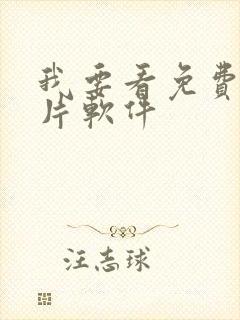 我要看免費
片軟件
汪志球